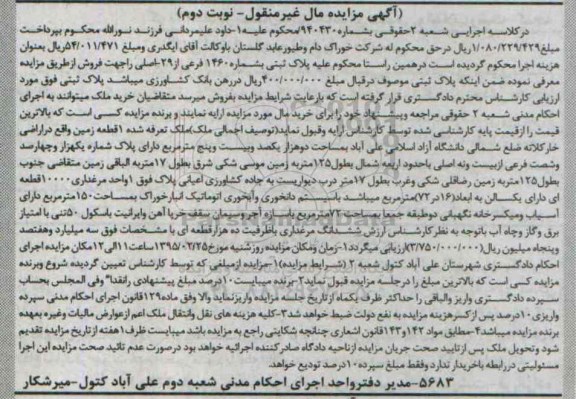 (آگهی مزایده مال غیرمنقول- نوبت دوم)
درکلاسه اجرایی شعبه ۲حقوقی بشماره۹۴۰۴۳۰محکوم علیه۱-داود علیمردانی فرزند نورالله محکوم بپرداخت
مبلغ۱/۰۸۰/۲۲۹/۴۲۹ریال درحق محکوم له شرکت خوراک دام وطیورعابد گلستان باوکالت آقای ایگدری ومبلغ۵۴/۰۱۱/۴۷۱ریال بعنوان
هزینه اجرا محکوم گردیده است درهمین راستا محکوم علیه پلاک ثبتی بشماره۱۴۶۰ فرعی از۲۹-اصلی راجهت فروش ازطریق مزایده
معرفی نموده ضمن اینکه پلاک ثبتی موصوف درقبال مبلغ ۴۰۰/۰۰۰/۰۰۰ریال دررهن بانک کشاورزی میباشد پلاک ثبتی فوق مورد
ارزیابی کارشناس محترم دادگستری قرار گرفته است که بارعایت شرایط مزایده بفروش میرسد متقاضیان خرید ملک میتوانند به اجرای
احکام مدنی شعبه ۲ حقوقی مراجعه وپیشنهاد خود را برای خرید مال مورد مزایده ارایه نمایند و برنده مزایده کسی است که بالاترین
قیمت را ازقیمت پایه کارشناسی شده توسط کارشناس ارایه وقبول نماید(توصیف اجمالی ملک)ملک تعرفه شده ۱قطعه زمین واقع دراراضی
خارکلاته ضلع شمالی دانشگاه آزاد اسلامی علی آباد بمساحت دوهزار یکصد وبیست وپنج مترمربع دارای پلاک شماره یکهزار وچهارصد
وشصت فرعی ازبیست ونه اصلی باحدود اربعه شمال بطول۱۲۵متربه زمین موسی شکی شرق بطول ۱۷متربه الباقی زمین متقاضی جنوب
بطول۱۲۵متربه زمین رضاقلی شکی وغرب بطول ۱۷متر درب دیواریست به جاده کشاورزی اعیانی پلاک فوق ۱واحد مرغداری ۱۰۰۰۰قطعه
ای دارای یکسالن به ابعاد(۱۶در۷۲)مترمربع میباشد باسیستم دانخوری وآبخوری اتوماتیک انبارخوراک بمساحت ۱۵۰مترمربع دارای
آسیاب ومیکسرخانه نگهبانی دوطبقه جمعا بمساحت۷۲مترمربع باسازه آجر وسیمان سقف خرپا آهن وایرانیت باسکول ۵۰تنی با امتیاز
برق وگاز وچاه آب باتوجه به نظرکارشناس ارزش ششدانگ مرغداری باظرفیت ده هزارقطعه ای با مشخصات فوق سه میلیارد وهفتصد
وپنجاه میلیون ریال(۳/۷۵۰/۰۰۰/۰۰۰)ارزیابی میگردد۱-زمان ومکان مزایده روزشنبه مورخ۱۳۹۵/۰۲/۲۵ساعت۱۱الی۱۲مکان مزایده اجرای
احکام دادگستری شهرستان علی آباد کتول شعبه ۲ (شرایط مزایده)۱-مزایده ازمبلغی که توسط کارشناس تعیین گردیده شروع وبرنده
مزایده کسی است که بالاترین مبلغ را درجلسه مزایده قبول نماید۲-برنده میبایست ۱۰درصد مبلغ پیشنهادی رانقدا" وفی المجلس بحساب
سپرده دادگستری واریز والباقی را حداکثر ظرف یکماه ازتاریخ جلسه مزایده واریزنماید والا وفق ماده۱۲۹قانون اجرای احکام مدنی سپرده
واریزی۱۰درصد پس ازکسرهزینه مزایده به نفع دولت ضبط خواهد شد۳-کلیه هزینه های نقل وانتقال ملک اعم ازعوارض مالیات وغیره بعهده
برنده مزایده میباشد۴-مطابق مواد ۱۴۲و۱۴۳قانون اشعاری چنانچه شکایتی راجع به مزایده باشد میبایست ظرف۱هفته ازتاریخ مزایده تقدیم
شود وتحویل ملک پس ازتایید صحت جریان مزایده ازناحیه دادگاه صادرکننده اجرائیه خواهد بود درصورت عدم تائید صحت مزایده این اجرا
مسئولیتی دررابطه باخریدار ندارد وفقط مبلغ سپرده ۱۰درصد تودیع خواهد.
۵۶۸۳-مدیر دفترواحد اجرای احکام مدنی شعبه دوم علی آباد کتول-میرشکار